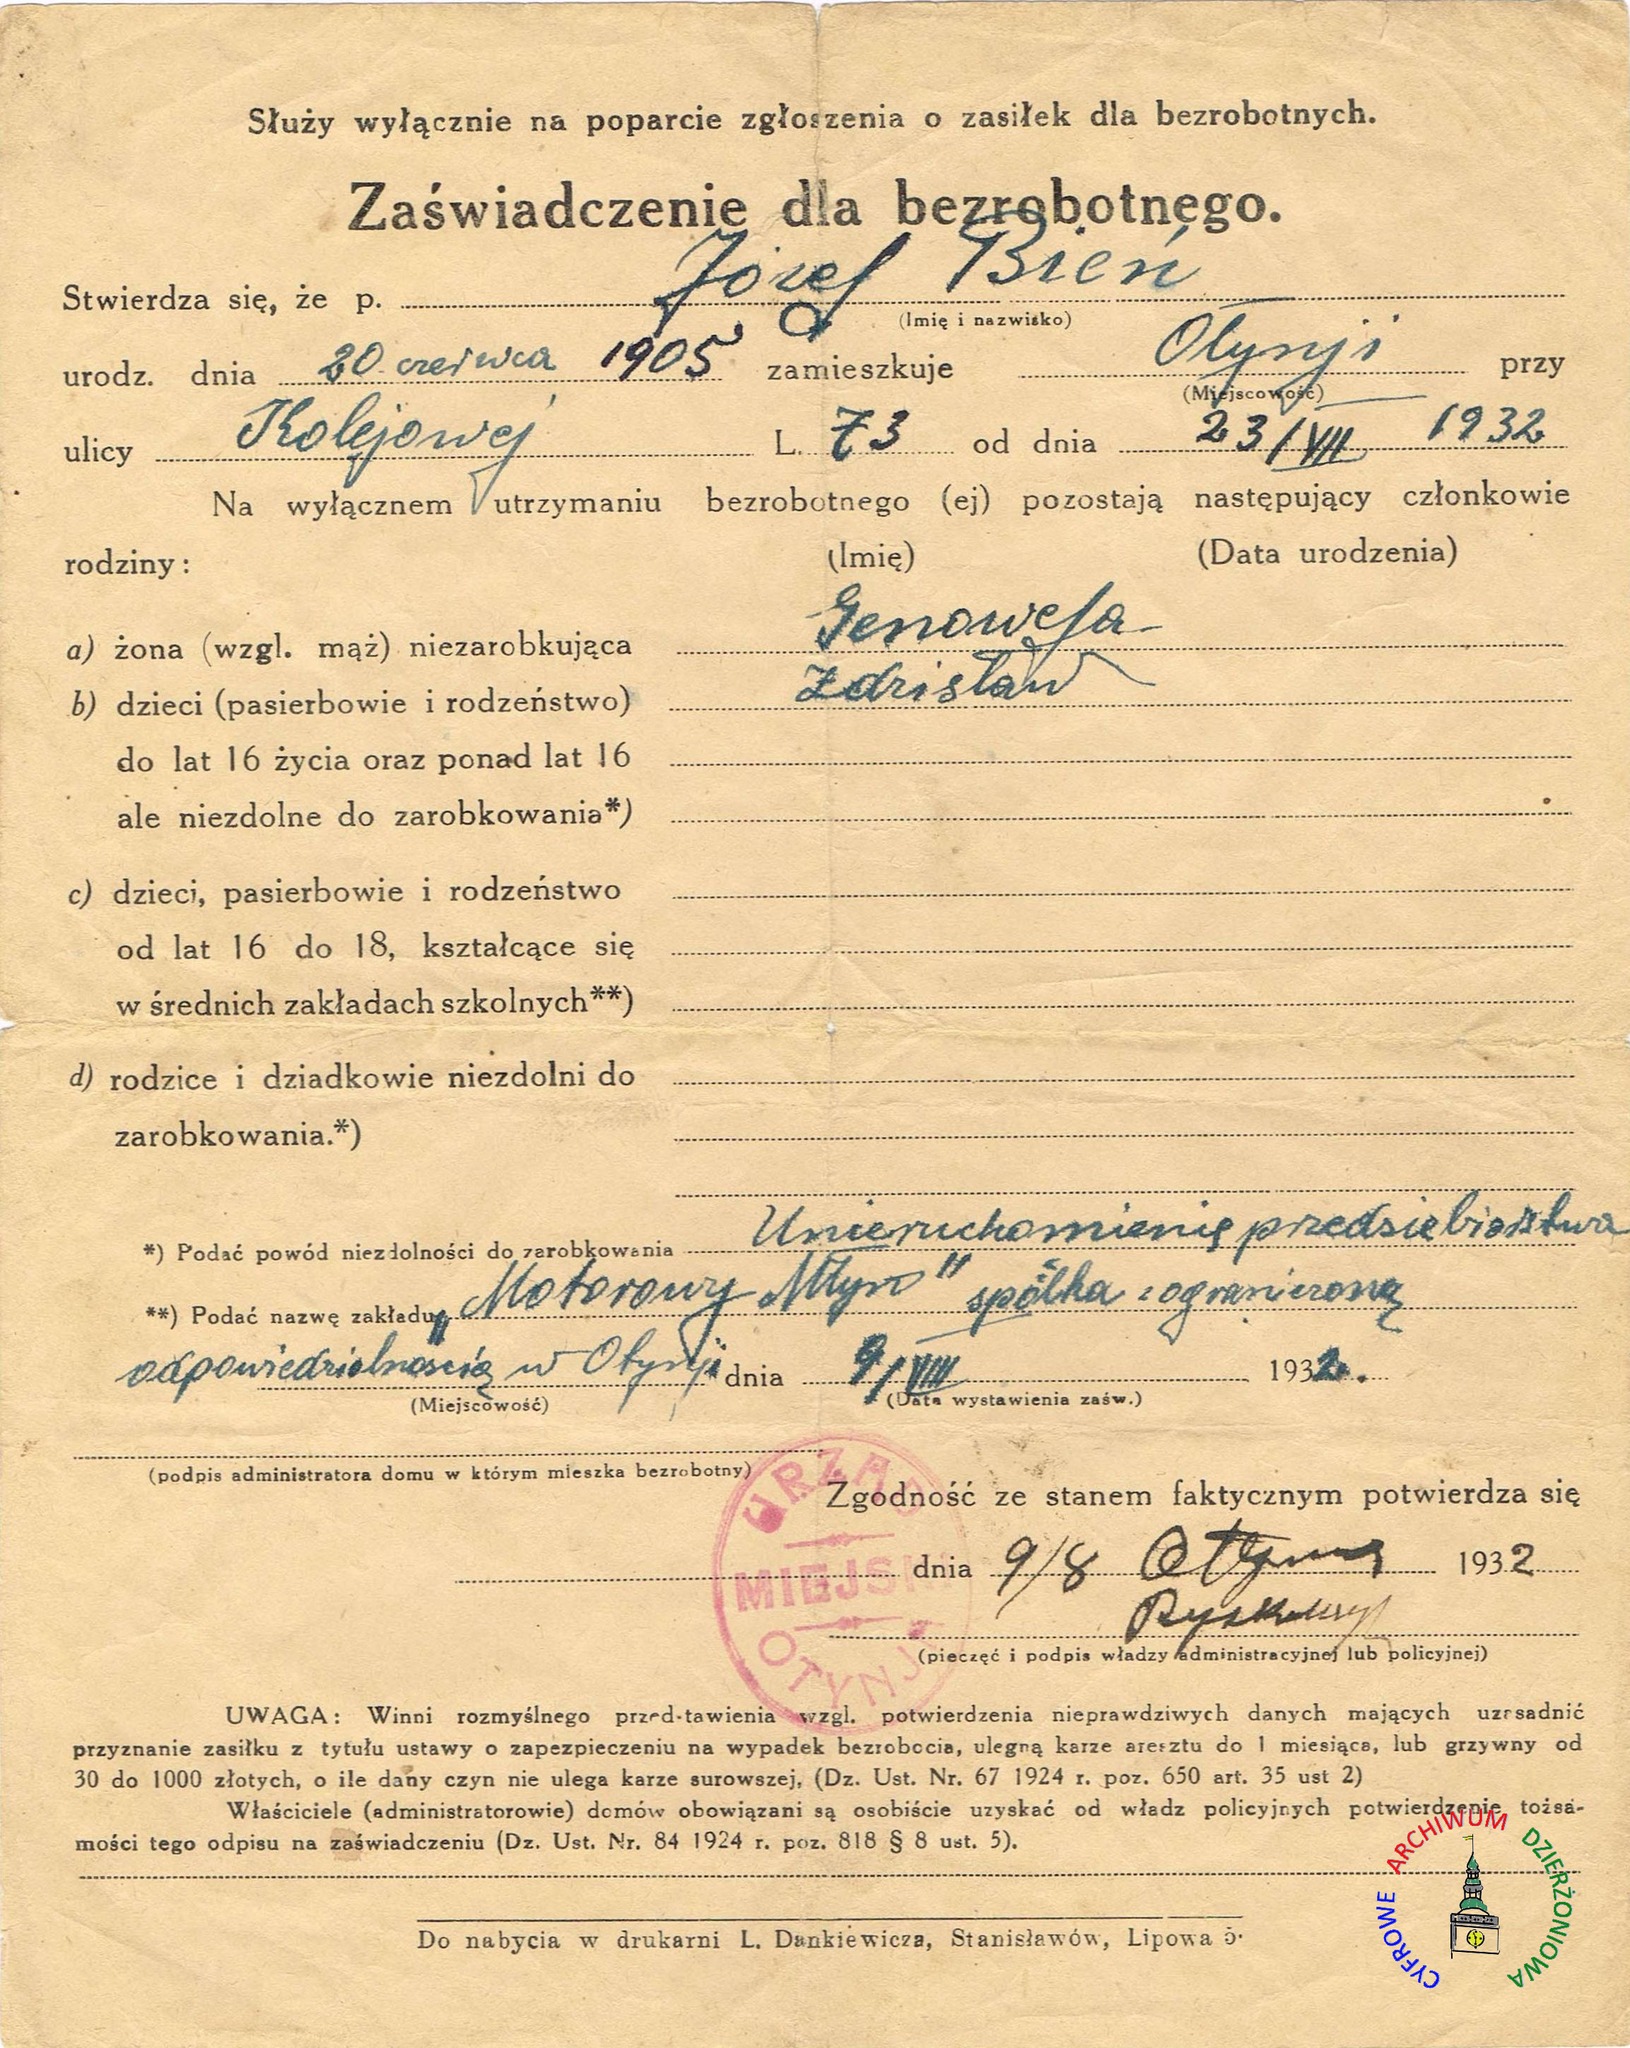 Służy wyłącznie na poparcie zgłoszenia o zasiłek dla bezrobotnych.
Zaświadczenie dla bezrobotnego.
Stwierdza się, że p. Józef Bień
(Imię i nazwisko)
urodz. dnia 20 czerwca 1905 zamieszkuje Otynji przy
(Miejscowość)
ulicy Kolejowej L. 73 od dnia 23/VII 1932
Na wyłącznem utrzymaniu bezrobotnego (ej) pozostają następujący członkowie
rodziny: (Imię) (Data urodzenia)
a) żona (wzgl. mąż) niezarobkująca Genowefa
b) dzieci (pasierbowie i rodzeństwo) Zdzisław
do lat 16 życia oraz ponad lat 16
ale niezdolne do zarobkowania*)
c) dzieci, pasierbowie i rodzeństwo
od lat 16 do 18, kształcące się
w średnich zakładach szkolnych**)
d) rodzice i dziadkowie niezdolni do
zarobkowania.*)
*) Podać powód niezdolności do zarobkowania Unieruchomienie przedsiebiorstwa
**) Podać nazwę zakładu „Motorowy Młyn" spółka z ograniczoną
odpowiedzialnością w Otynji dnia 9/VIII 1932.
(Miejscowość) (Data wystawienia zaśw.)
(podpis administratora domu w którym mieszka bezrobotny)
Zgodność ze stanem faktycznym potwierdza się
dnia 9/8 1932
(pieczęć i podpis władzy administracyjnej lub policyjnej)
URZĄD
MIEJSKI
OTYNJA
UWAGA: Winni rozmyślnego przed-tawienia wzgl. potwierdzenia nieprawdziwych danych mających uzasadnić
przyznanie zasiłku z tytułu ustawy o zapezpieczeniu na wypadek bezrobocia, ulegną karze aresztu do 1 miesiąca, lub grzywny od
30 do 1000 złotych, o ile dany czyn nie ulega karze surowszej, (Dz. Ust. Nr. 67 1924 r. poz. 650 art. 35 ust 2)
Właściciele (administratorowie) domów obowiązani są osobiście uzyskać od władz policyjnych potwierdzenie tożsa-
mości tego odpisu na zaświadczeniu (Dz. Ust. Nr. 84 1924 r. poz. 818 § 8 ust. 5).
Do nabycia w drukarni L. Dankiewicza, Stanisławów, Lipowa 5.
CYFROWE ARCHIWUM DZIERŻONIOWA